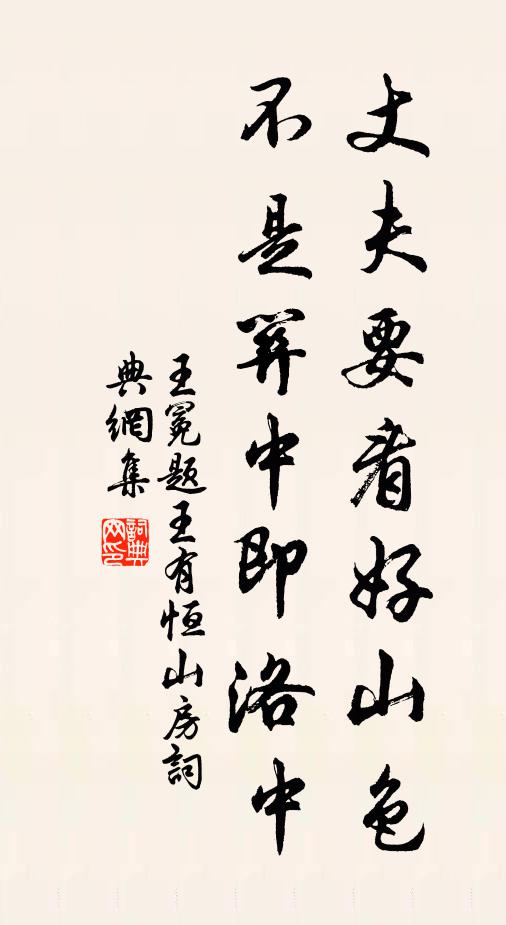 丈夫要看好山色
不是笄中即洛中
王冕題王有恒山房詞
典網集
詞典
网印